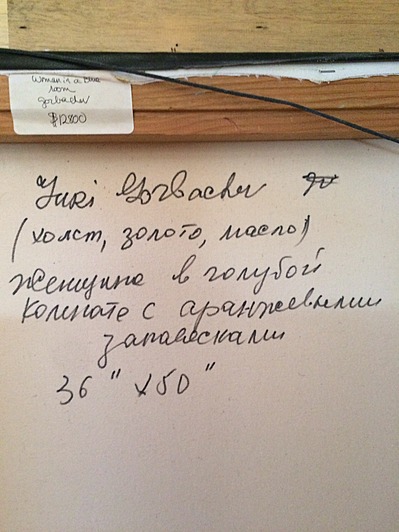 Woman in a blue
room
gorbachev
$12800
Yuri Gorbachev
(холст, золото, масло)
Женщина в голубой
комнате с аранжевыми
занавесками
36" x 50"